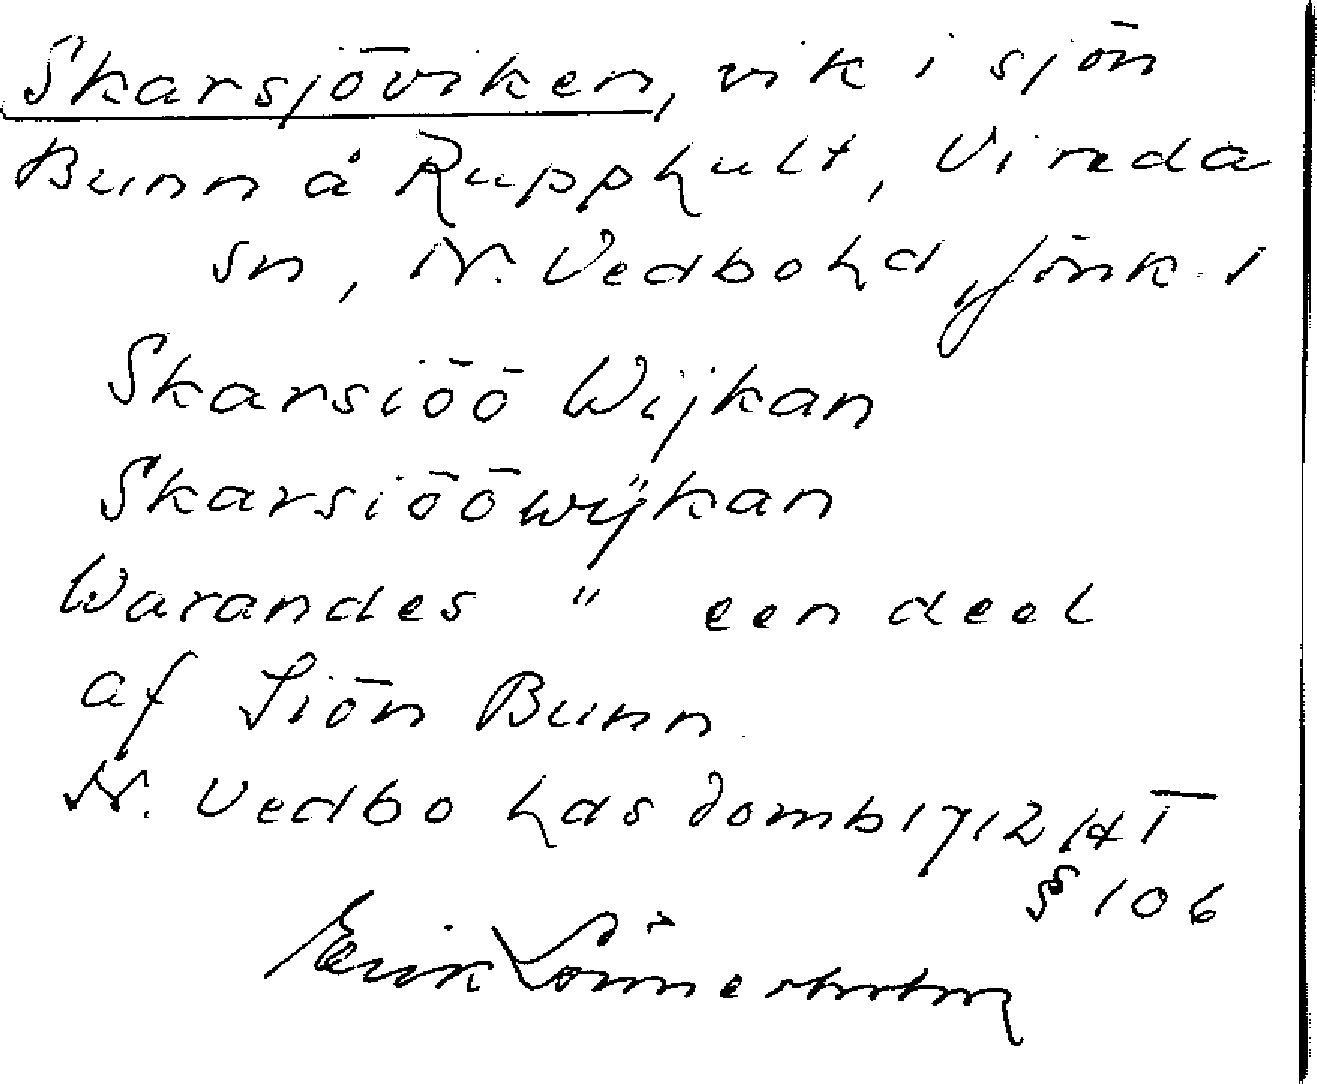 Skarsjöviken, vik i sjön
Bunn å Rupphult, Vireda
sn, N. Vedbo hd, Jönk. l
Skarsiöö Wijkan
Skarsiööwÿkan
Warandes " een deel
af Siön Bunn.
N. Vedbo hds domb 1712 Ht
§ 106
Erik Lönnerholm